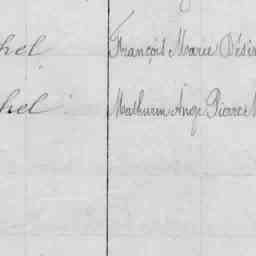 hel François Marie Dési
hel Mathurin Ange Pierre M